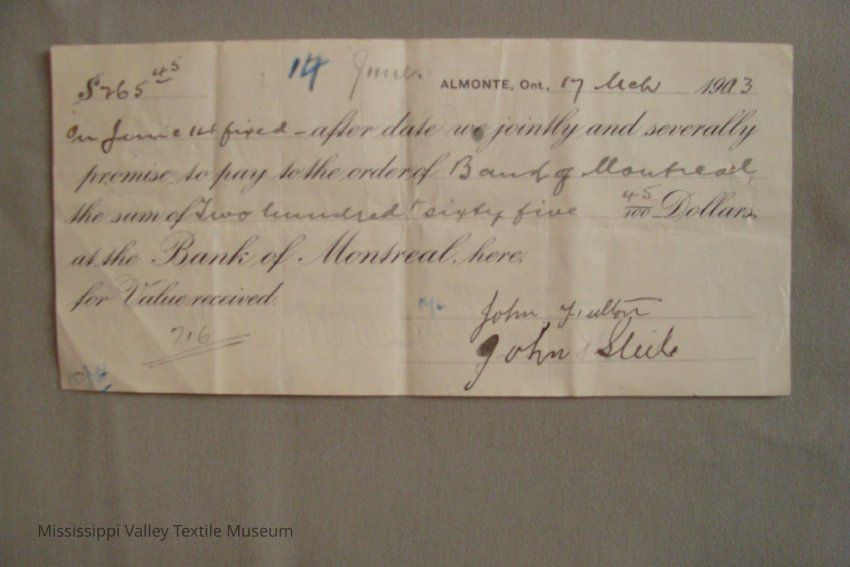 $265 45
14 June. ALMONTE, Ont., 17 Mch 1903
On June 14 fixed - after date we jointly and severally
promise to pay to the order of Bank of Montreal
the sum of Two hundred + sixty five 45/100 Dollars
at the Bank of Montreal, here,
for Value received.
John Fulton
716
John Steele
Mississippi Valley Textile Museum